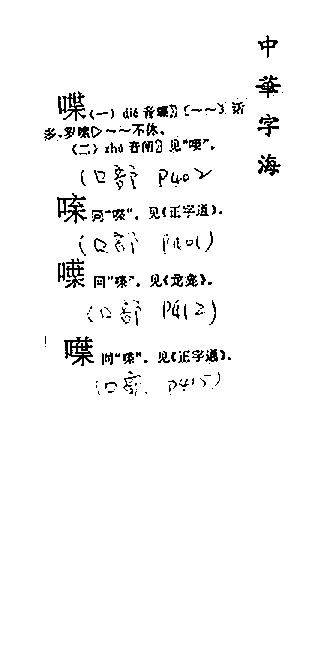 中華字海
喋(一) dié 音蝶〔~~〕话
多,多嘴▷~~不休。
(二) zhá 音闸 见“喋”。
(口部 P402
同“喋”。见《正字通》。
(口部 P401)
同“喋”。见《龙龛》。
(口部 P412)
同“喋”。见《正字通》。
(口部. P415)